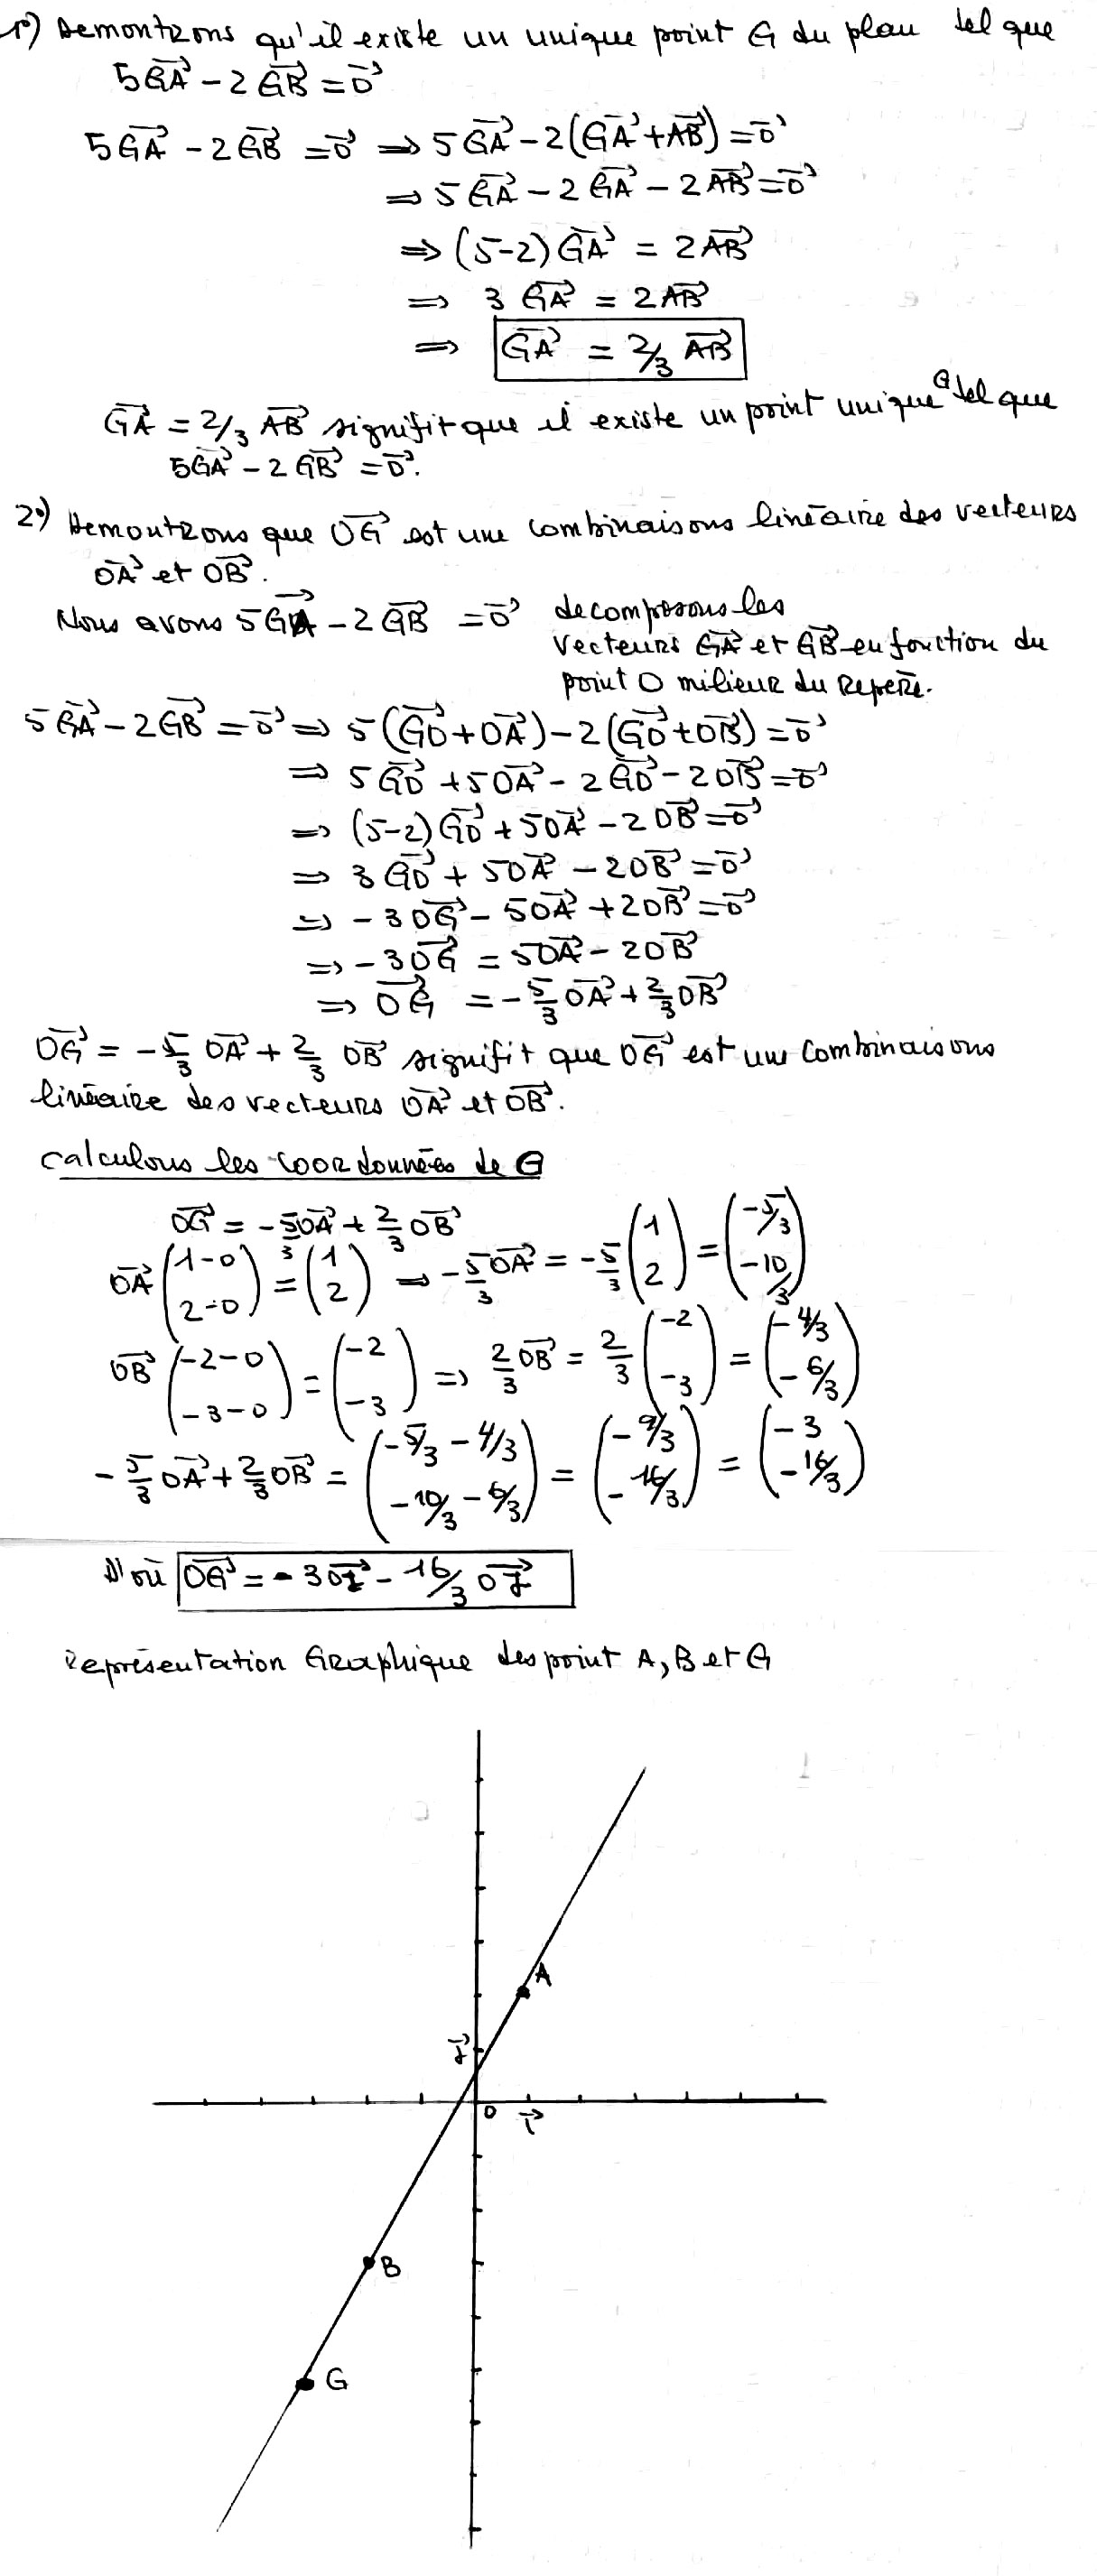 1°) Demontrons qu'il existe un unique point G du plan tel que
5GA⃗ - 2GB⃗ = 0⃗
5GA⃗ - 2GB⃗ = 0⃗ ⇒ 5GA⃗ - 2(GA⃗ + AB⃗) = 0⃗
⇒ 5GA⃗ - 2GA⃗ - 2AB⃗ = 0⃗
⇒ (5-2)GA⃗ = 2AB⃗
⇒ 3GA⃗ = 2AB⃗
⇒ GA⃗ = 2/3 AB⃗
GA⃗ = 2/3 AB⃗ signifit que il existe un point unique G tel que
5GA⃗ - 2GB⃗ = 0⃗.
2°) Demontrons que OG⃗ est une combinaisons linéaire des vecteurs
OA⃗ et OB⃗.
Nous avons 5GA⃗ - 2GB⃗ = 0⃗ decomposons les
vecteurs GA⃗ et GB⃗ en fonction du
point O milieur du repère.
5GA⃗ - 2GB⃗ = 0⃗ ⇒ 5(GO⃗ + OA⃗) - 2(GO⃗ + OB⃗) = 0⃗
⇒ 5GO⃗ + 5OA⃗ - 2GO⃗ - 2OB⃗ = 0⃗
⇒ (5-2)GO⃗ + 5OA⃗ - 2OB⃗ = 0⃗
⇒ 3GO⃗ + 5OA⃗ - 2OB⃗ = 0⃗
⇒ -3OG⃗ - 5OA⃗ + 2OB⃗ = 0⃗
⇒ -3OG⃗ = 5OA⃗ - 2OB⃗
⇒ OG⃗ = -5/3 OA⃗ + 2/3 OB⃗
OG⃗ = -5/3 OA⃗ + 2/3 OB⃗ signifit que OG⃗ est une combinaisons
linéaire des vecteurs OA⃗ et OB⃗.
Calculons les coordonnées de G
OG⃗ = -5/3 OA⃗ + 2/3 OB⃗
OA⃗ (1-0 ; 2-0) = (1 ; 2) → -5/3 OA⃗ = -5/3 (1 ; 2) = (-5/3 ; -10/3)
OB⃗ (-2-0 ; -3-0) = (-2 ; -3) ⇒ 2/3 OB⃗ = 2/3 (-2 ; -3) = (-4/3 ; -6/3)
-5/3 OA⃗ + 2/3 OB⃗ = (-5/3 - 4/3 ; -10/3 - 6/3) = (-9/3 ; -16/3) = (-3 ; -16/3)
D'où OG⃗ = -3OI⃗ - 16/3 OJ⃗
représentation Graphique des point A, B et G
A
J⃗
O
I⃗
B
G